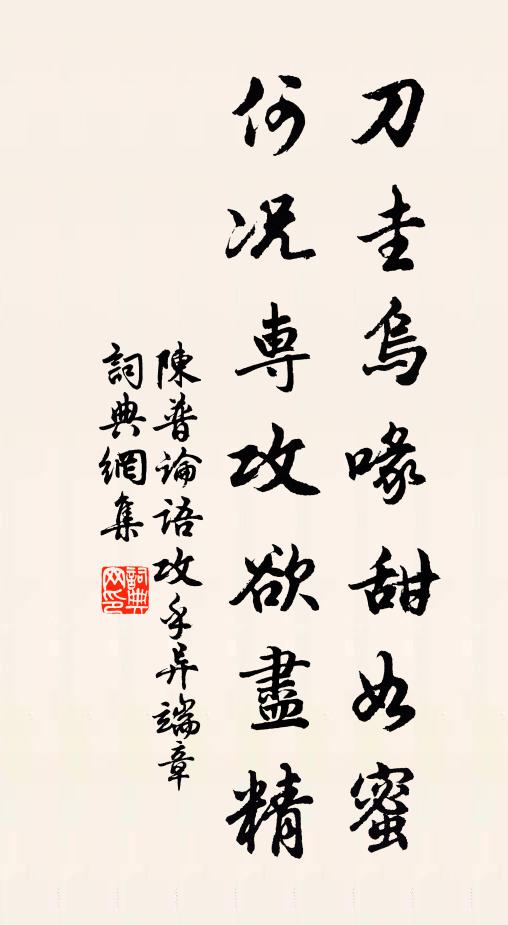 刀圭烏喙甜如蜜
何况專攻欲盡精
陳普論語攻乎异端章
詞典網集
詞典网印